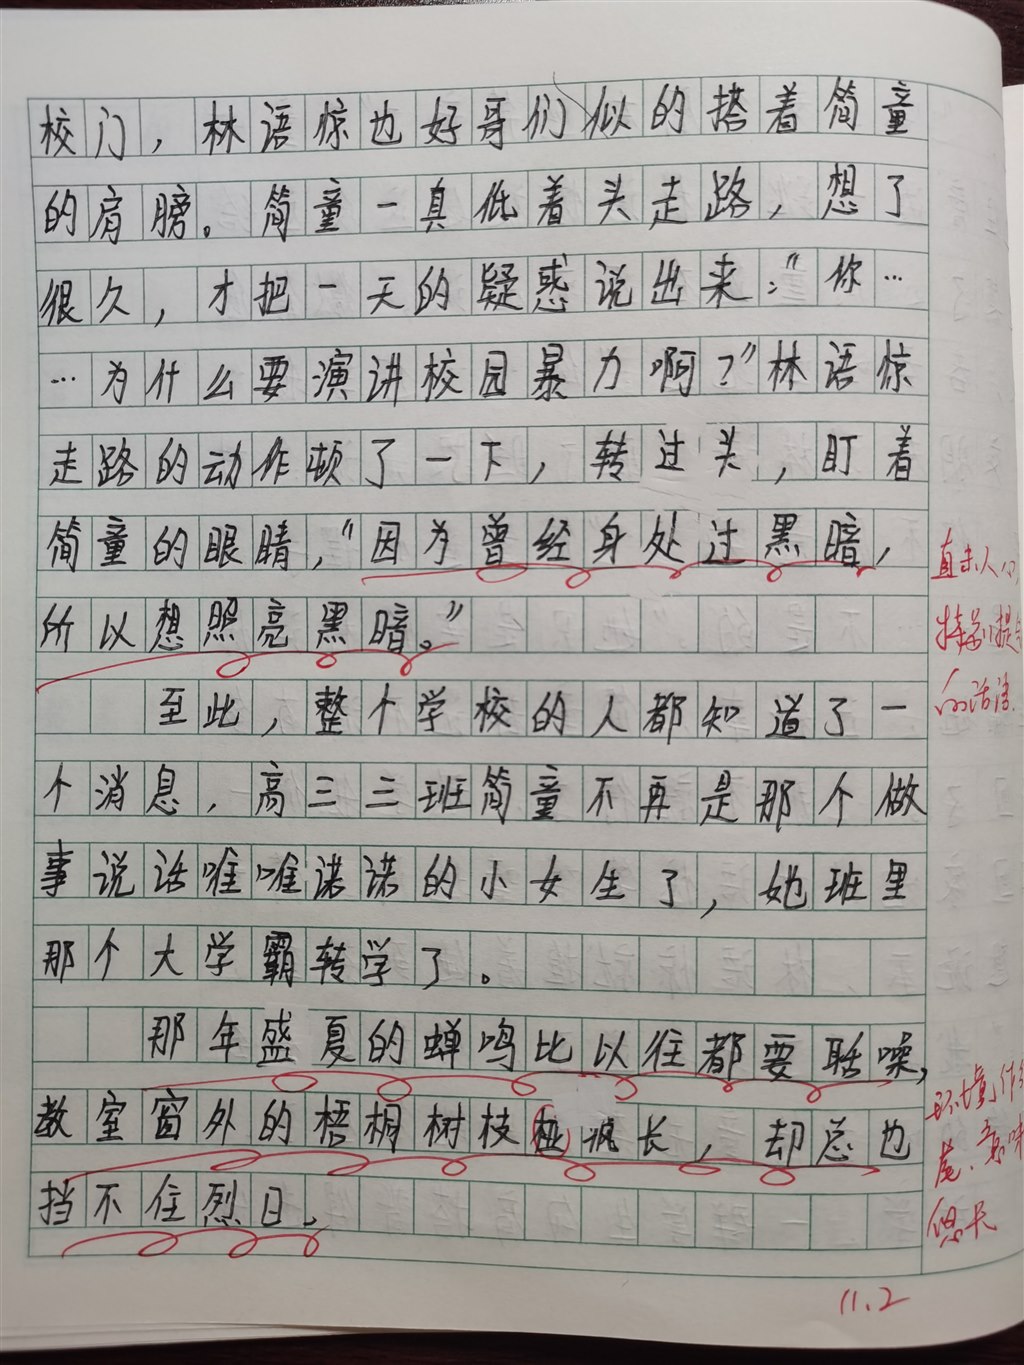 校门，林语惊也好哥们似的搭着简童
的肩膀。简童一真低着头走路，想了
很久，才把一天的疑惑说出来："你…
…为什么要演讲校园暴力啊？"林语惊
走路的动作顿了一下，转过头，盯着
简童的眼睛，"因为曾经身处过黑暗，
所以想照亮黑暗。"
直击人心
特别提
的话语.
至此，整个学校的人都知道了一
个消息，高三三班简童不再是那个做
事说话唯唯诺诺的小女生了，她班里
那个大学霸转学了。
那年盛夏的蝉鸣比以往都要聒噪，
教室窗外的梧桐树枝桠疯长，却总也
挡不住烈日。
环境作结
尾、意味
悠长
11.2